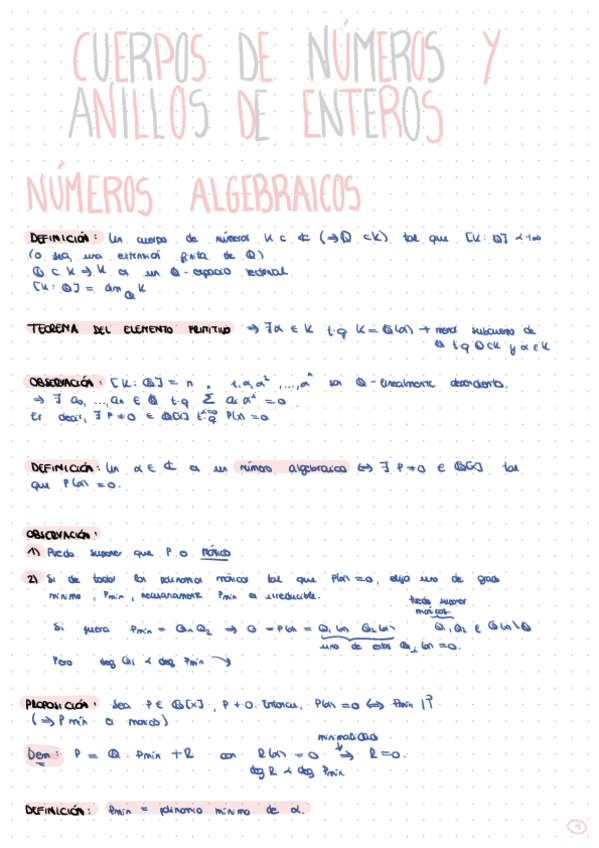 CUERPOS DE NÚMEROS Y
ANILLOS DE ENTEROS
NÚMEROS ALGEBRAICOS
DEFINICIÓN: Un cuerpo de números K ⊂ ℂ (⇒ ℚ ⊂ K) tal que [K:ℚ] < +∞
(o sea, una extensión finita de ℚ)
ℚ ⊂ K ⇒ K es un ℚ-espacio vectorial
[K:ℚ] = dim_ℚ K
TEOREMA DEL ELEMENTO PRIMITIVO → ∃α ∈ K t.q K = ℚ(α) → menor subcuerpo de
t.q ℚ⊂K y α∈K
OBSERVACIÓN: [K:ℚ] = n, 1, α, α², ..., αⁿ son ℚ-linealmente dependientes.
⇒ ∃ a₀, ..., aₙ ∈ ℚ t.q Σ aᵢ αⁱ = 0
Es decir, ∃ P ≠ 0 ∈ ℚ[x] t.q P(α) = 0
DEFINICIÓN: Un α ∈ ℂ es un número algebraico ⇔ ∃ P ≠ 0 ∈ ℚ[x] tal
que P(α) = 0.
OBSERVACIÓN:
1) Puedo suponer que P es mónico
2) Si de todos los polinomios mónicos tal que P(α) = 0, elijo uno de grado
mínimo, Pmin, necesariamente Pmin es irreducible.
Puedo suponer
mónicos
Si fuera Pmin = Q₁Q₂ ⇒ 0 = P(α) = Q₁(α) Q₂(α) Q₁, Q₂ ∈
uno de estos Qᵢ(α) = 0.
Pero deg Qᵢ < deg Pmin
PROPOSICIÓN: Sea P ∈ ℚ[x], P ≠ 0. Entonces, P(α) = 0 ⇔ Pmin | P
(⇒ Pmin es mónico)
minimalidad
Dem: P = Q · Pmin + R con R(α) = 0 ⇒ R = 0.
deg R < deg Pmin
DEFINICIÓN: Pmin = polinomio mínimo de α.
1